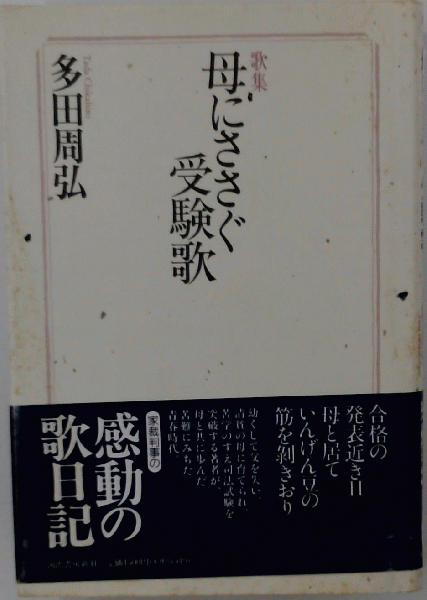 歌集
母にささぐ
受験歌
多田周弘
合格の
発表近き日
母と居て
いんげん豆の
筋を剝きおり
幼くして父を失い、
苦学のすえ司法試験を
突破する著者が、
母と共に歩んだ
苦難にみちた
青春時代
家裁判事の
感動の
歌日記